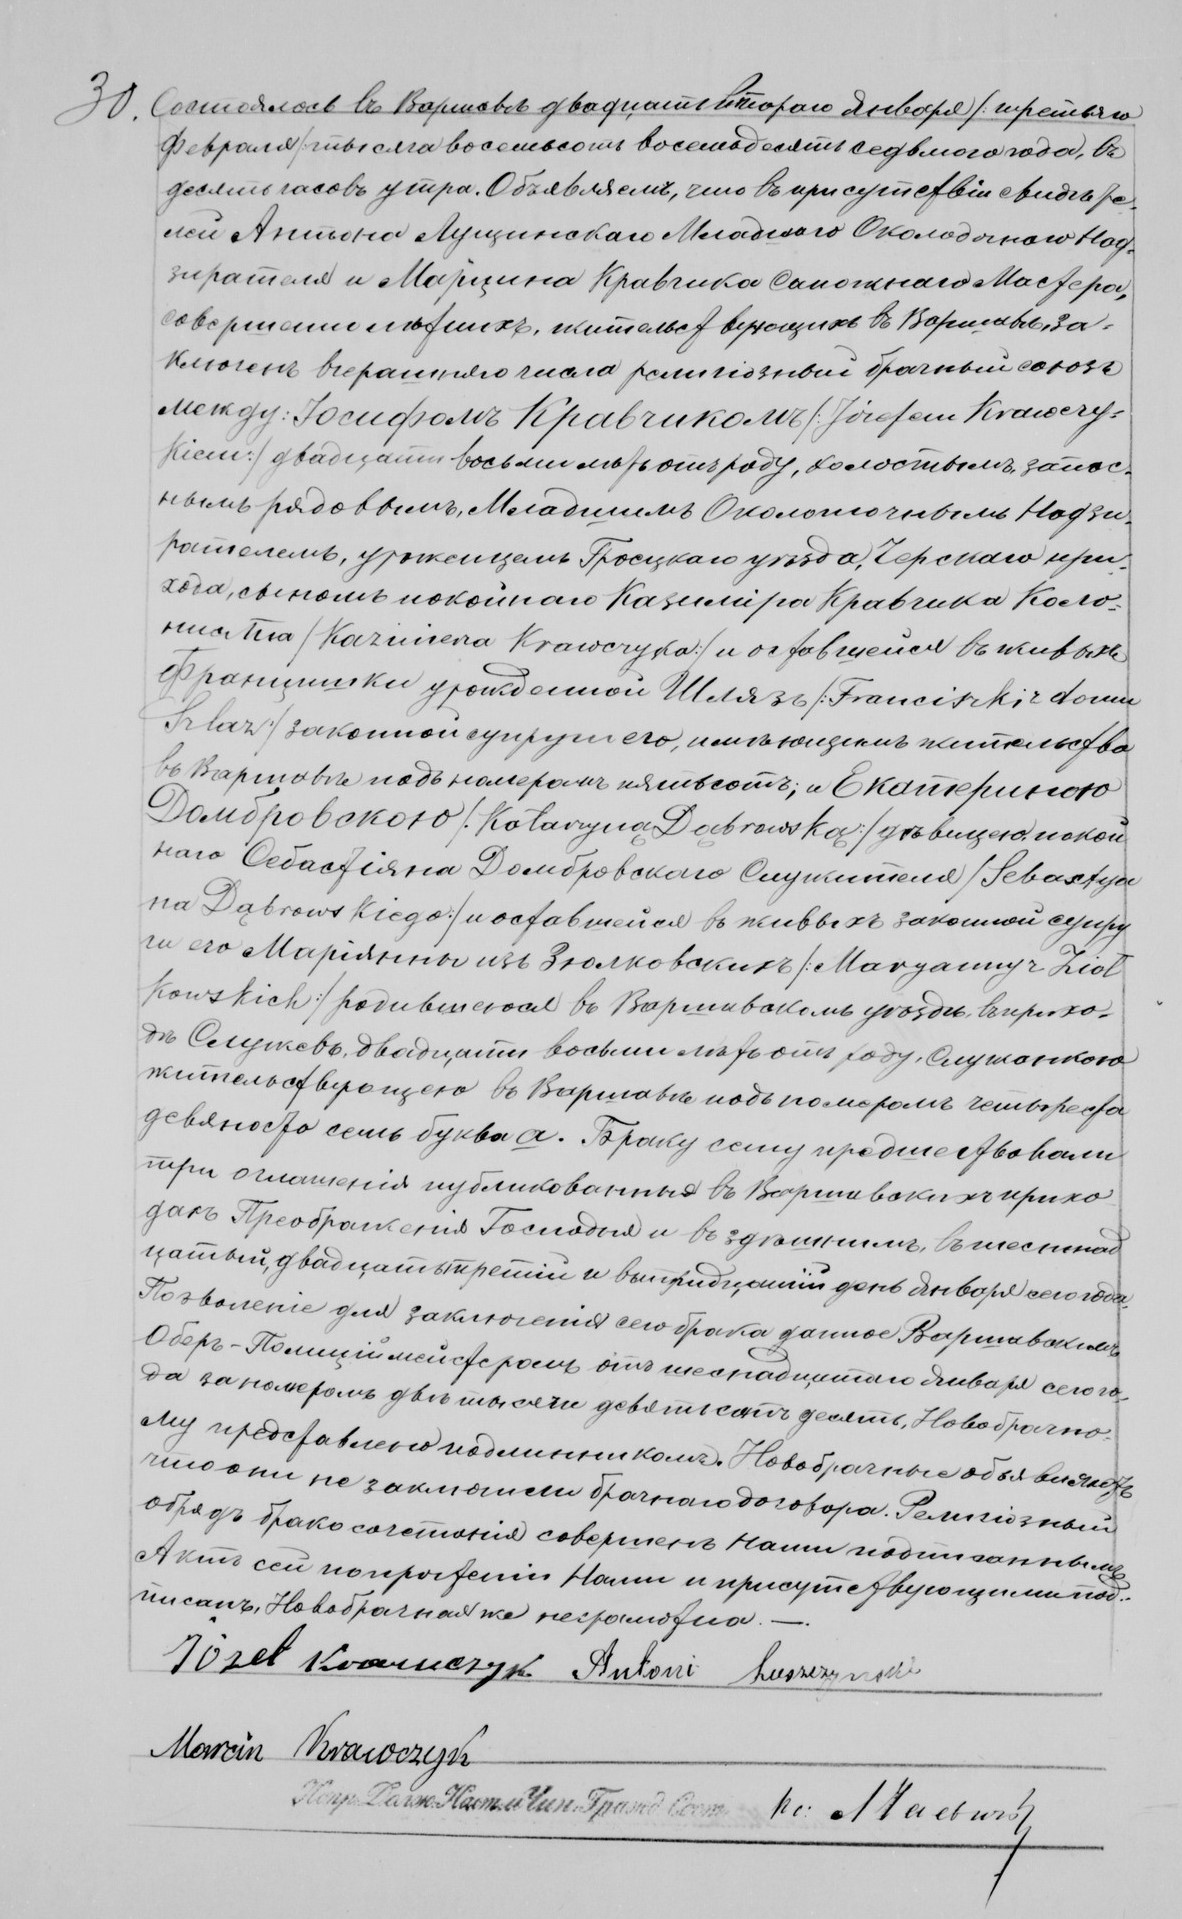 30.
Состоялось въ Варшавѣ двадцать втораго Января /: третьяго
Февраля / тысяча восемьсотъ восемьдесятъ седьмого года, въ
десять часовъ утра. Объявляемъ, что въ присутствіи свидѣте-
лей Антона Лущинскаго Младшаго Околодочнаго Над-
зирателя и Марцина Кравчика Сапожнаго Мастера,
совершеннолѣтнихъ, жительствующихъ въ Варшавѣ, за-
ключенъ вчерашняго числа религіозный брачный союзъ
между: Іосифомъ Кравчикомъ /: Józefem Krawczy-
kiem :/ двадцати восьми лѣтъ отъ роду, холостымъ, запас-
нымъ рядовымъ, Младшимъ Околоточнымъ Надзи-
рателемъ, уроженцемъ Гроецкаго уѣзда, Черскаго при-
хода, сыномъ покойнаго Казиміра Кравчика Коло-
ниста / Kazimiera Krawczyka :/ и оставшейся въ живыхъ
Францишки урожденной Шлязъ /: Franciszki z domu
Szlaz :/ законной супруги его, имѣющимъ жительство
въ Варшавѣ подъ номеромъ пятьсотъ; и Екатериною
Домбровскою /: Katarzyną Dąbrowską :/ дѣвицею, покой
наго Себастіяна Домбровскаго Служителя / Sebastya
na Dąbrowskiego :/ и оставшейся въ живыхъ законной супру
ги его Маріянны изъ Зіолковскихъ /: Maryanny z Ziół
kowskich :/ родившеюся въ Варшавскомъ уѣздѣ, въ прихо-
дѣ Служевъ, двадцати восьми лѣтъ отъ роду, Служанкою
жительствующею въ Варшавѣ подъ номеромъ четыреста
девяносто семь буква а. Браку сему предшествовали
три оглашенія публикованныя въ Варшавскихъ прихо
дахъ Преображенія Господня и въ здѣшнимъ, въ шестнад
цатый, двадцать третій и въ тридцатый день Января сего года.
Позволеніе для заключенія сего брака данное Варшавскимъ
Оберъ-Полиціймейстеромъ отъ шеснадцатаго Января сего го-
да за номеромъ двѣ тысячи девятьсотъ десять, Новобрачно-
му представлено подлинникомъ. Новобрачные объявляютъ
что они не заключили брачнаго договора. Религіозный
обрядъ бракосочетанія совершенъ Нами подписаннымъ
Актъ сей по прочтеніи Нами и присутствующими под-
писанъ, Новобрачная же неграмотна. —
Józef Krawczyk Antoni Łuszczynski
Marcin Krawczyk
Испр. Долж. Наст. и Чин. Гражд. Сост.